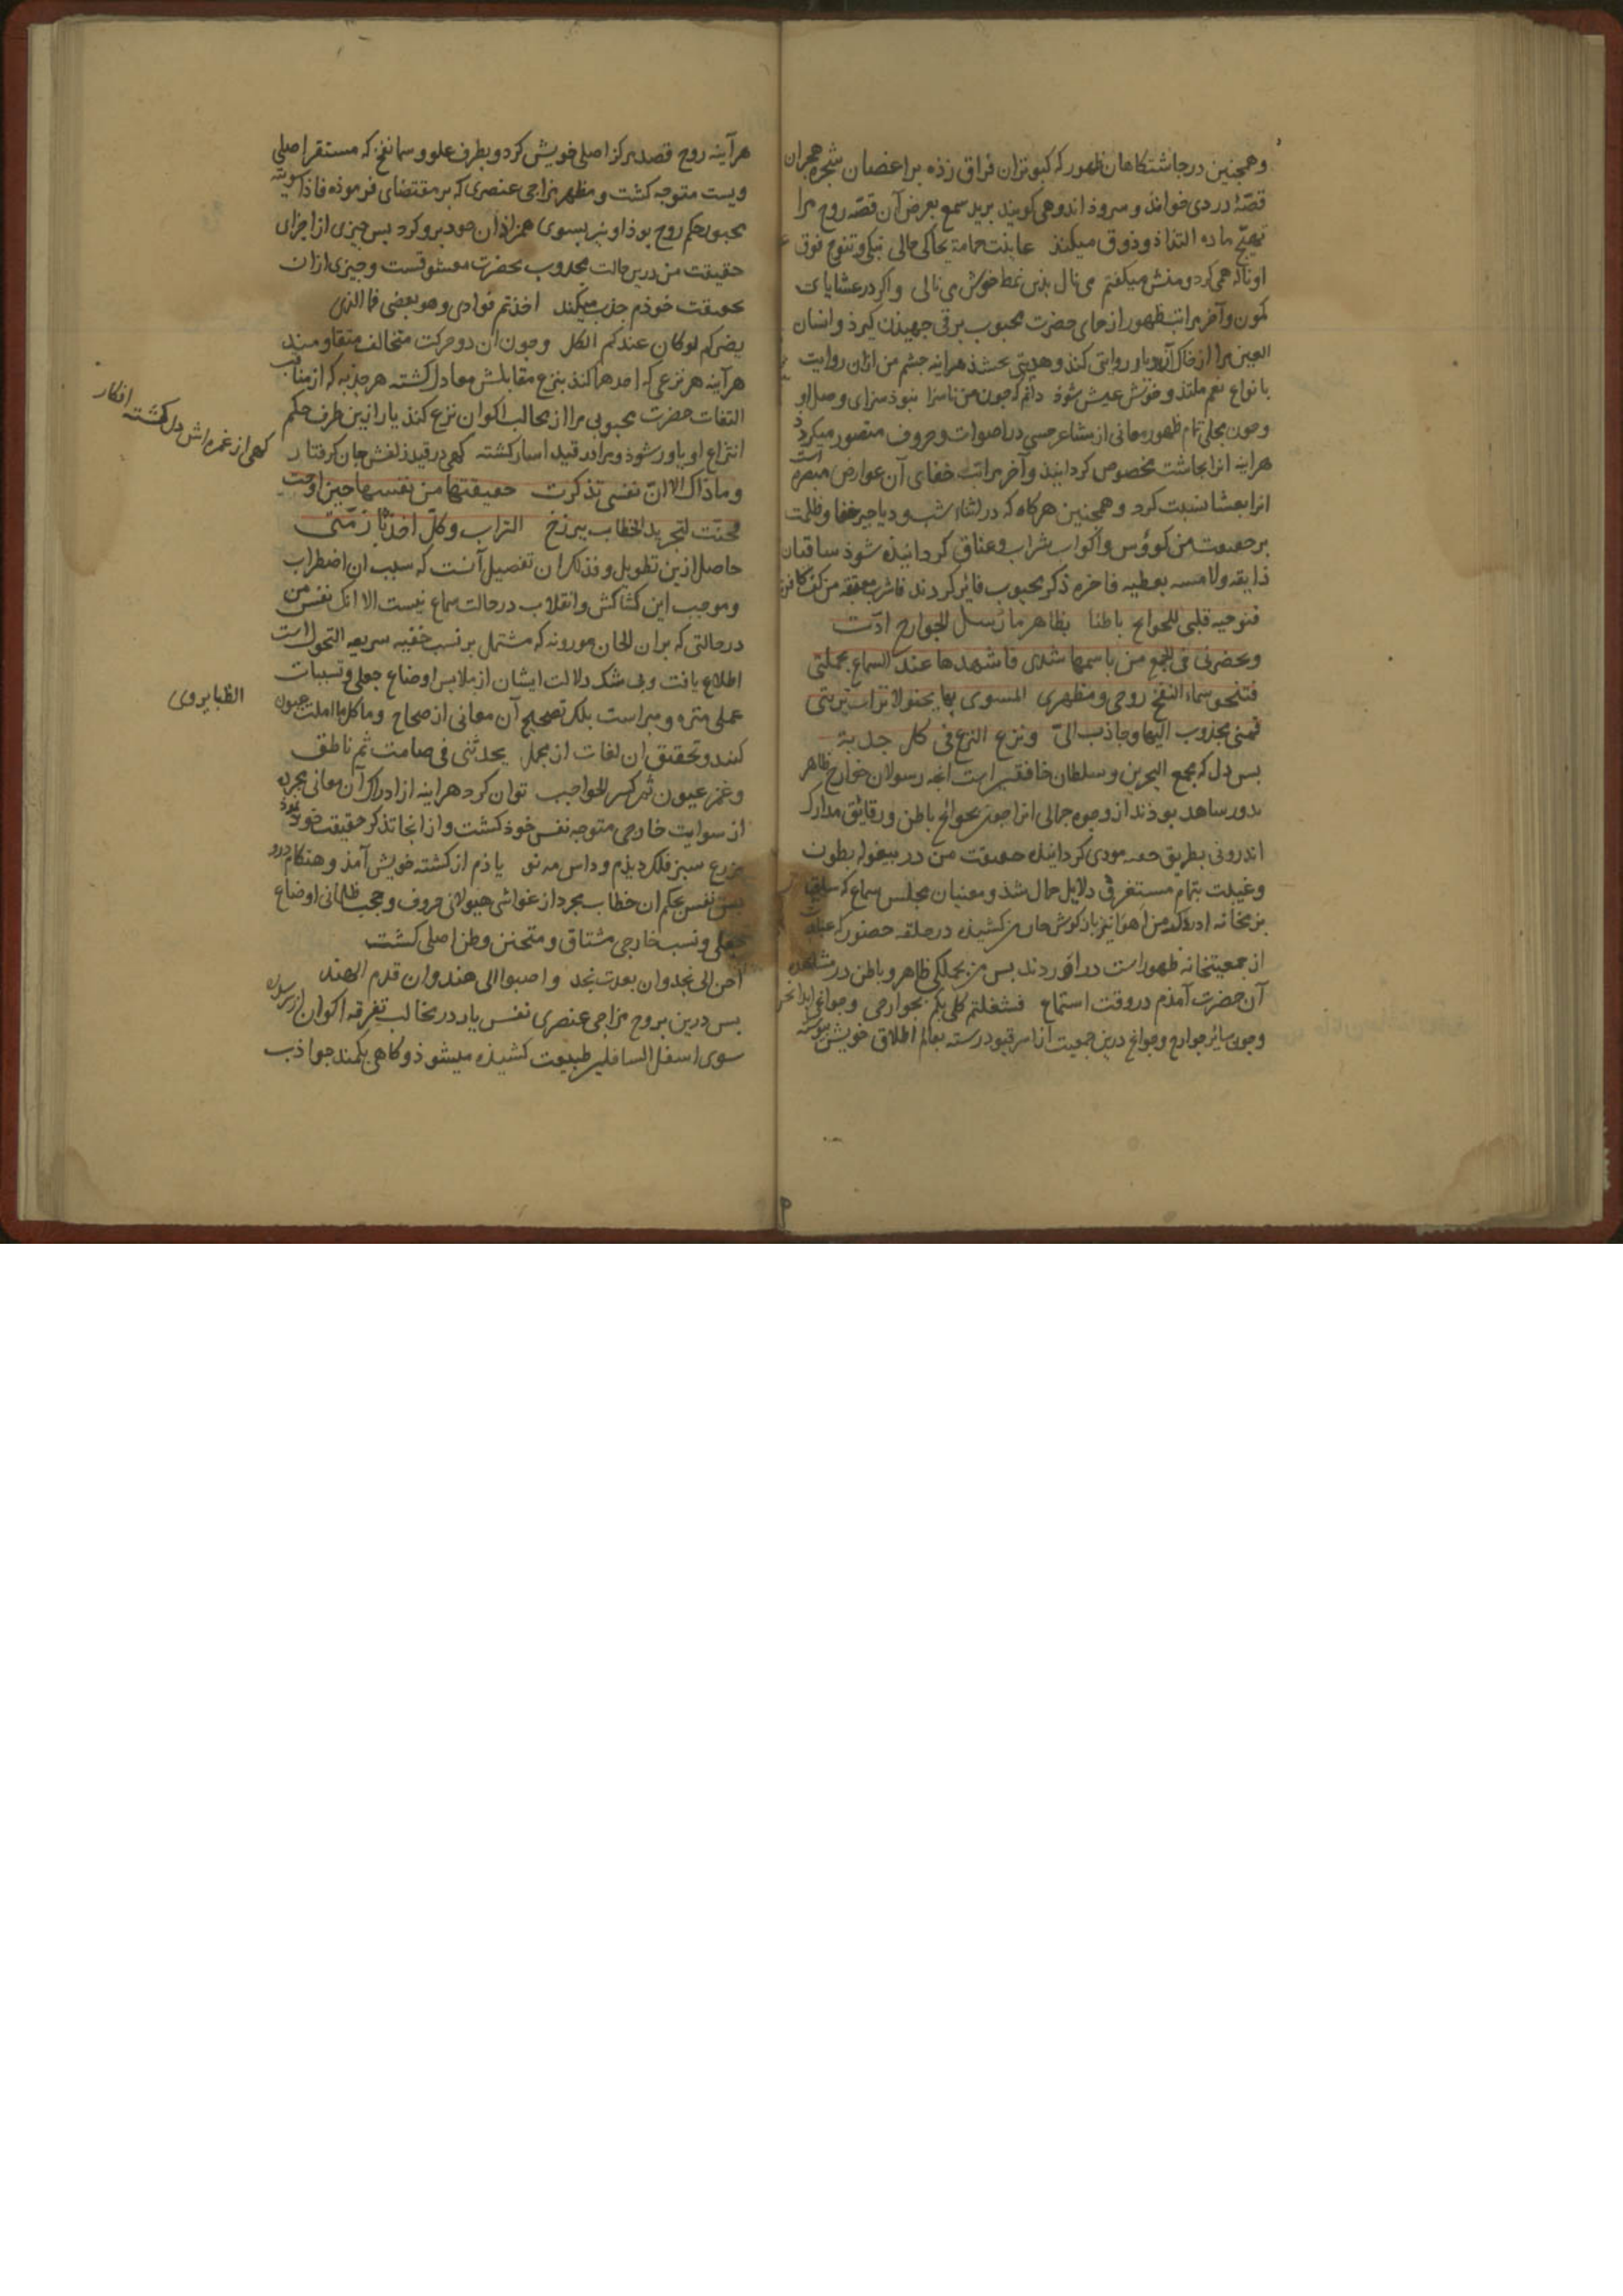 وهمچنین در چاشتکاهان ظهور که کبوتران فراق زده بر اغصان شجره هجران
قصّهٔ دردی خوانذ و سروذ اندوهی کویند برید سمع بعرض آن قصّه روح مرا
تهیج ماده التذاذ و ذوق میکند عاینت حمامة یحاکی حالی تبکی وتنوح فوق
او ناله همی کرد و منش میکفتم می نال بذین نمط خوش می نالی و اکر در عشایات
کمون و آخر مراتب ظهور از حمای حضرت محبوب برقی جهیذن کیرذ و انسان
العین مرا از خاک آن دیار روایتی کند و هدیتی بخشذ هر اینه چشم من از ان روایت
بانواع نعم ملتذ و خوش عیش شوذ دانم که چون من ناسزا نبوذ سزای وصل او
وچون مجلی تمام ظهور معانی از مشاعر حسی در اصوات و حروف متصور میکرد
هراینه انرا بچاشت مخصوص کردانیذ و آخر مراتب خفای آن عوارض مبصره است
انرا بعشا نسبت کرد و همچنین هرکاه که در اثناء شب و دیاجیر خفا و ظلمت
بر حقیقت من کوؤس و اکواب شراب و عناق کردانیذه شوذ ساقیان
ذایقه و لامسه بعطیه فاخره ذکر محبوب فایز کردند فاشرب معتقة من کف
فیوحیه قلبی للجوانح باطنا بظاهر ما رسل الجوارح ادّت
ویحضرنی فی الجمع من باسمها شدی فاشهدها عند السماع بجملتی
فتنحو سماء النفخ روحی ومظهری المسوی بها یحنو لاتراب تربتی
فمنی مجذوب الیها وجاذب الیّ ونزع النزع فی کل جذبة
بس دل که مجمع البحرین و سلطان خافقین است انچه رسولان خوارج ظاهر
بدور ساهد بوذند از وجوه جمالی انرا چون بجوانح باطن و رقایق مدارک
اندرونی بطریق خفیه مودی کردانیذ حقیقت من در بیغوله بطون
وغیبت بتمام مستغرق دلایل جمال شذ و مغنیان مجلس سماع که ساقیان
بزمخانه ادراک من اهواند باز کوش جان من کشیده در حلقه حضور
از جمعیتخانه ظهور است در اوردند بس من بجملکی ظاهر و باطن در مشاهده
آن حضرت آمذم در وقت استماع فشغلتم کلی بکم بجوارحی وجوانحی ابدا تحن
وچون سایر جوارح و جوانح درین جمعیت از اسر قیود رسته بعالم اطلاق خویش پیوسته
هرآینه روح قصد مرکز اصلی خویش کرد و بطرف علو و سما نفخ که مستقر اصلی
ویست متوجه کشت و مظهر مزاجی عنصری که بر مقتضای فرموذه فاذا سویته
محبور حکم روح بوذ او نیز بسوی همزاذان خود میل کرد بس چیزی از اجزای
حقیقت من درین حالت مجذوب بحضرت معشوقست و چیزی از ان
بحقیقت خوذم جذب میکند اخذتم فوادی وهو بعضی فما الذی
یضرکم لو کان عندکم الکل وچون ان دو حرکت متخالف متقاومند
هرآینه هر نزعی که احدهما کند بنزع مقابلش معادل کشته هر جذبه که از جناب
التفات حضرت محبوبی مرا از مخالب اکوان نزع کند یا از این طرف حکم
انتزاع او یاور شوذ و مرا در قید اسار کشته کهی در قید زلفش جان کرفتار
کهی از غمزه اش دل کشته افکار
وما ذاک الا ان نفسی تذکرت حقیقتها من نفسها حین اوحت
فحنّت لتجرید الخطاب ببرزخ التراب وکلّ اخذ بازمّتی
حاصل ازین تطویل و فذلک ان تفصیل آنست که سبب ان اضطراب
وموجب این کشاکش وانقلاب در حالت سماع نیست الا انک نفس من
در حالتی که بر ان الحان موزونه که مشتمل بر نسب خفیه سریعه التحول است
اطلاع یافت وبی شک دلالت ایشان از ملابس اوضاع جعلی و تسببات
عملی منزه و مبراست بلک تصحیح آن معانی از صحاح وما کل ما املت عیون
الظبا یروی
کنند و تحقیق ان لغات از مجمل یحدثنی فی صامت ثم ناطق
وغمز عیون ثم کسر الحواجب توان کرد هراینه از ادراک آن معانی مجرده
از سوایت خارجی متوجه نفس خوذ کشت و از انجا تذکر حقیقت خود نموذ
مزرع سبز فلک دیذم و داس مه نو یاذم از کشته خویش آمذ و هنکام درو
بس نفس بحکم ان خطاب مجرد از غواشی هیولانی حروف و حجب ظلمانی اوضاع
جعلی و نسب خارجی مشتاق و متحنن وطن اصلی کشت
احن الی نجد وان بعدت نجد واصبوا الی هند وان قدم العهد
بس درین بروح مزاجی عنصری نفس یار در مخالب تفرقه اکوان
سوی اسفل السافلین طبیعت کشیذه میشوذ و کاهی بکمند جواذب